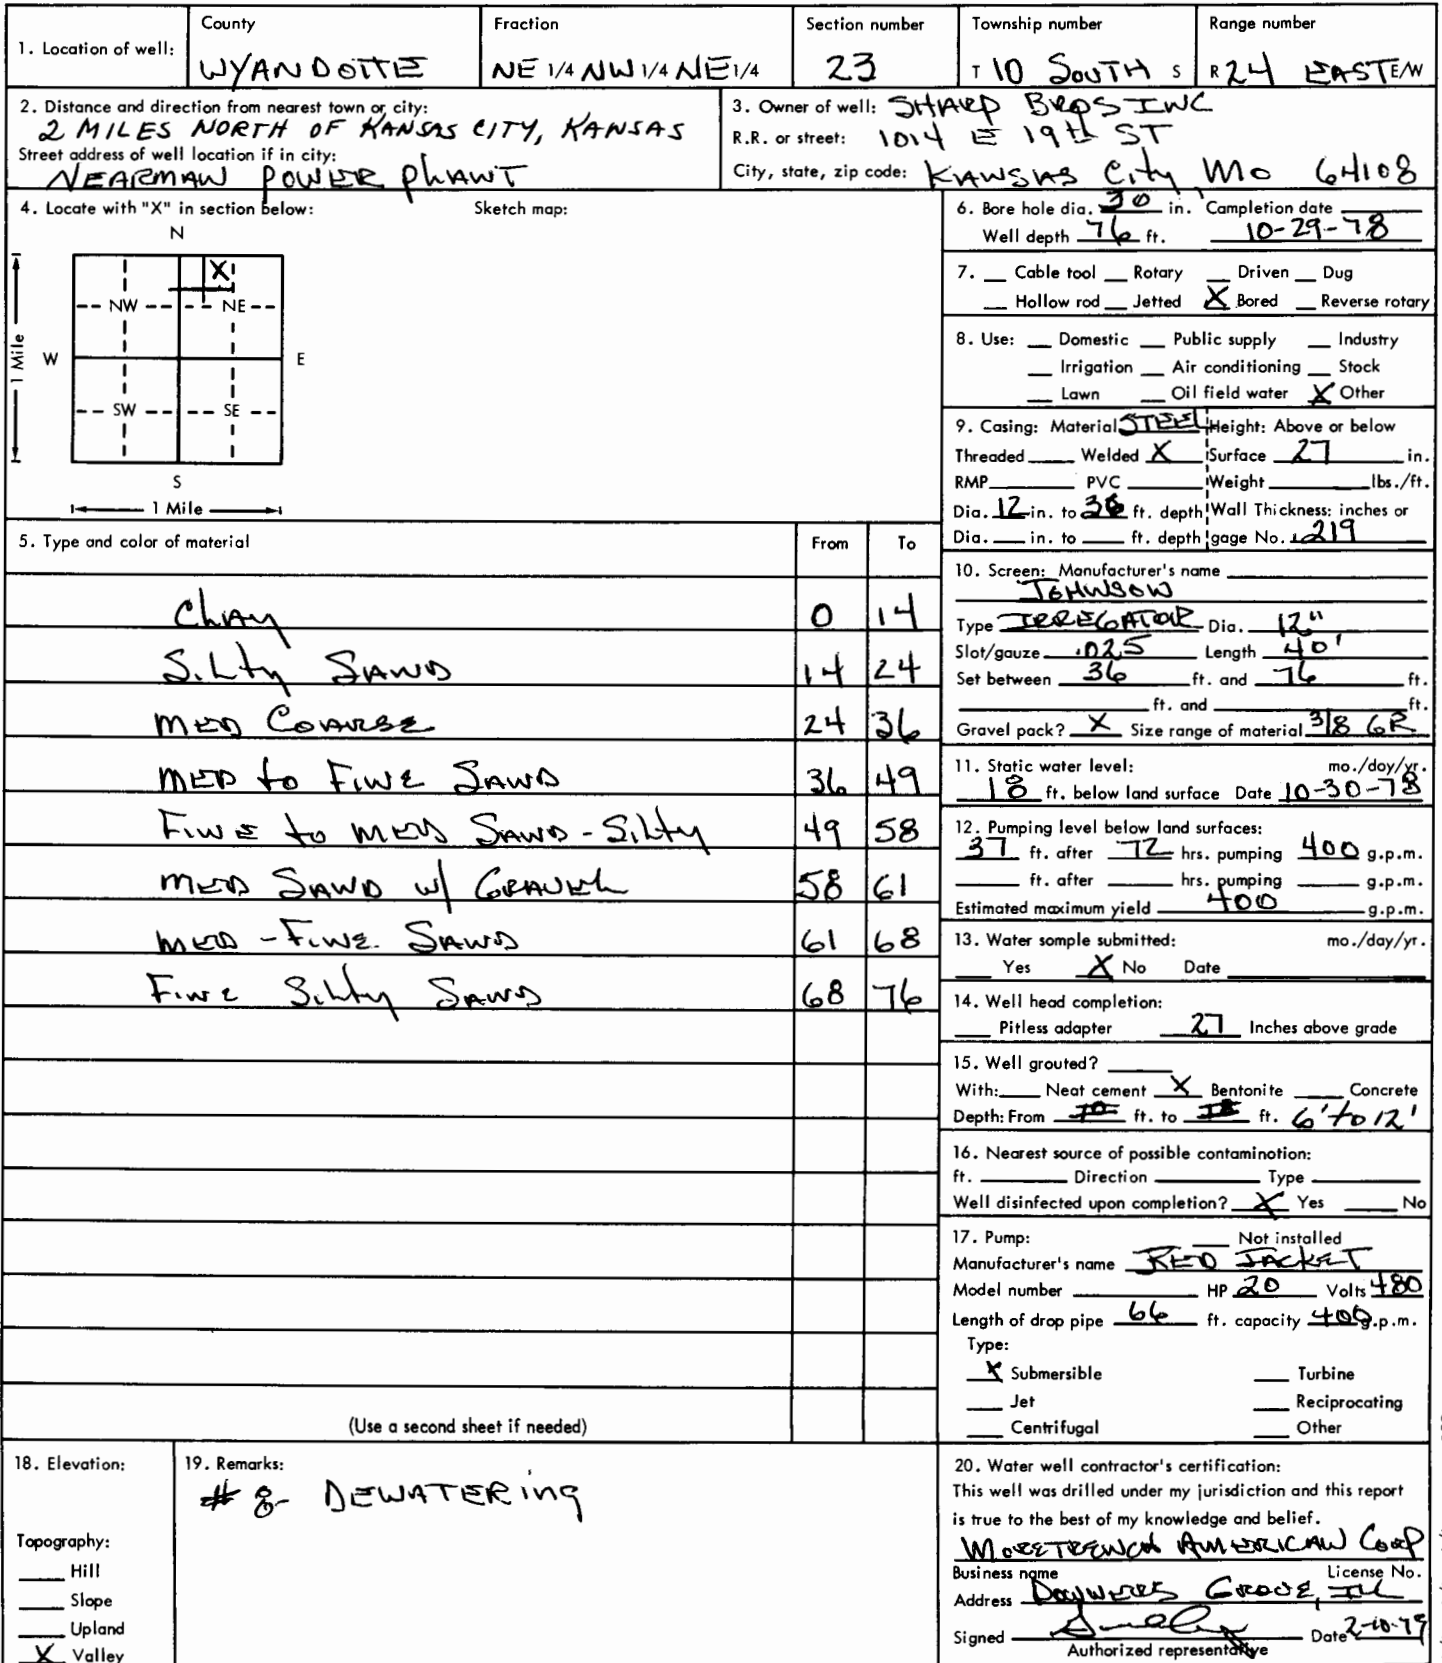 1. Location of well:
County
WYANDOTTE
Fraction
NE 1/4 NW 1/4 NE 1/4
Section number
23
Township number
T 10 SOUTH S
Range number
R 24 EAST E/W
2. Distance and direction from nearest town or city:
2 MILES NORTH OF KANSAS CITY, KANSAS
Street address of well location if in city:
NEARMAN POWER PLANT
3. Owner of well: SHARP BROS INC
R.R. or street: 1014 E 19th ST
City, state, zip code: KANSAS City, Mo 64108
4. Locate with "X" in section below:
Sketch map:
N
X
NW NE
1 Mile
W E
SW SE
S
1 Mile
5. Type and color of material From To
CLAY 0 14
SILTY SAND 14 24
MED COARSE 24 36
MED to FINE SAND 36 49
FINE to MED SAND - SILTY 49 58
MED SAND w/ GRAVEL 58 61
MED - FINE SAND 61 68
FINE SILTY SAND 68 76
(Use a second sheet if needed)
6. Bore hole dia. 30 in. Completion date
Well depth 76 ft. 10-29-78
7. Cable tool Rotary Driven Dug
Hollow rod Jetted X Bored Reverse rotary
8. Use: Domestic Public supply Industry
Irrigation Air conditioning Stock
Lawn Oil field water X Other
9. Casing: Material STEEL Height: Above or below
Threaded Welded X Surface 27 in.
RMP PVC Weight lbs./ft.
Dia. 12 in. to 36 ft. depth Wall Thickness: inches or
Dia. in. to ft. depth gage No. .219
10. Screen: Manufacturer's name
JOHNSON
Type IRREGATOR Dia. 12"
Slot/gauze .025 Length 40'
Set between 36 ft. and 76 ft.
ft. and ft.
Gravel pack? X Size range of material 3/8 GR
11. Static water level: mo./day/yr.
18 ft. below land surface Date 10-30-78
12. Pumping level below land surfaces:
37 ft. after 72 hrs. pumping 400 g.p.m.
ft. after hrs. pumping g.p.m.
Estimated maximum yield 400 g.p.m.
13. Water sample submitted: mo./day/yr.
Yes X No Date
14. Well head completion:
Pitless adapter 27 Inches above grade
15. Well grouted?
With: Neat cement X Bentonite Concrete
Depth: From ft. to ft. 6' to 12'
16. Nearest source of possible contamination:
ft. Direction Type
Well disinfected upon completion? X Yes No
17. Pump: Not installed
Manufacturer's name RED JACKET
Model number HP 20 Volts 480
Length of drop pipe 66 ft. capacity 400 g.p.m.
Type:
X Submersible Turbine
Jet Reciprocating
Centrifugal Other
18. Elevation:
Topography:
Hill
Slope
Upland
X Valley
19. Remarks:
# 8- DEWATERing
20. Water well contractor's certification:
This well was drilled under my jurisdiction and this report
is true to the best of my knowledge and belief.
MORETRENCH AMERICAN CORP
Business name License No.
Address DOWNERS GROVE, ILL
Signed Date 2-10-79
Authorized representative